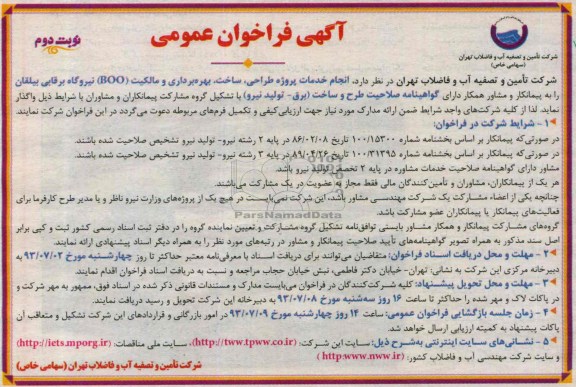 آگهی فراخوان عمومی
نوبت دوم
شرکت تأمین و تصفیه آب و فاضلاب تهران
(سهامی خاص)
شرکت تأمین و تصفیه آب و فاضلاب تهران در نظر دارد، انجام خدمات پروژه طراحی، ساخت، بهره‌برداری و مالکیت (BOO) نیروگاه برقابی بیلقان
را به پیمانکار و مشاور همکار دارای گواهینامه صلاحیت طرح و ساخت (برق- تولید نیرو) با تشکیل گروه مشارکت پیمانکاران و مشاوران با شرایط ذیل واگذار
نماید. لذا از کلیه شرکت‌های واجد شرایط ضمن ارائه مدارک مورد نیاز جهت ارزیابی کیفی و تکمیل فرم‌های مربوطه دعوت می‌گردد در این فراخوان شرکت نمایند.
۱- شرایط شرکت در فراخوان:
در صورتی‌که پیمانکار بر اساس بخشنامه شماره ۱۰۰/۱۵۳۰۰ تاریخ ۸۶/۰۲/۰۸ در پایه ۲ رشته نیرو- تولید نیرو تشخیص صلاحیت شده باشند.
در صورتی‌که پیمانکار بر اساس بخشنامه شماره ۱۰۰/۳۱۳۹۵ تاریخ ۸۹/۰۴/۲۶ در پایه ۳ رشته نیرو- تولید نیرو تشخیص صلاحیت شده باشند.
مشاور دارای گواهینامه صلاحیت خدمات مشاوره در پایه ۲ تخصص تولید نیرو باشد.
هر یک از پیمانکاران، مشاوران و تأمین‌کنندگان مالی فقط مجاز به عضویت در یک مشارکت می‌باشند.
چنانچه یکی از اعضاء مشارکت یک شرکت مهندسی مشاور باشد، این شرکت نمی‌بایست در هیچ یک از پروژه‌های وزارت نیرو ناظر و یا مدیر طرح کارفرما برای
فعالیت‌های پیمانکار یا پیمانکاران عضو مشارکت باشد.
گروه‌های مشارکت پیمانکار و همکار مشاور بایستی توافق‌نامه تشکیل گروه مشارکت و تعیین نماینده گروه را در دفتر ثبت اسناد رسمی کشور ثبت و کپی برابر
اصل سند مذکور به همراه تصویر گواهینامه‌های تأیید صلاحیت پیمانکار و مشاور در رتبه‌های مورد نظر را به همراه دیگر اسناد پیشنهادی ارائه نمایند.
۲- مهلت و محل دریافت اسناد فراخوان: متقاضیان می‌توانند برای دریافت اسناد با معرفی‌نامه معتبر حداکثر تا روز چهارشنبه مورخ ۹۳/۰۷/۰۲ به
دبیرخانه مرکزی این شرکت به نشانی: تهران- خیابان دکتر فاطمی، نبش خیابان حجاب مراجعه و نسبت به دریافت اسناد فراخوان اقدام نمایند.
۳- مهلت و محل تحویل پیشنهاد: کلیه شرکت‌کنندگان در فراخوان می‌بایست مدارک و مستندات قانونی ذکر شده در اسناد فوق، ممهور به مهر شرکت و
در پاکات لاک و مهر شده را حداکثر تا ساعت ۱۶ روز سه‌شنبه مورخ ۹۳/۰۷/۰۸ به دبیرخانه این شرکت تحویل و رسید دریافت نمایند.
۴- زمان جلسه بازگشایی فراخوان عمومی: ساعت ۱۴ روز چهارشنبه مورخ ۹۳/۰۷/۰۹ در امور بازرگانی و قراردادهای این شرکت تشکیل و متعاقب آن
پاکات پیشنهاد به کمیته ارزیابی ارسال خواهد شد.
۵- نشانی‌های سایت اینترنتی به‌شرح ذیل: سایت این شرکت: (http://tww.tpww.co.ir)، سایت ملی مناقصات: (http://iets.mporg.ir)
و سایت شرکت مهندسی آب و فاضلاب کشور: (http:www.nww.ir)
شرکت تأمین و تصفیه آب و فاضلاب تهران (سهامی خاص)
ParsNamadData